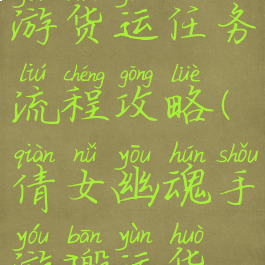 游货运任务
liú chéng gōng lüè
流程攻略(
qiàn nǚ yōu hún shǒu
倩女幽魂手
yóu bān yùn huò
游搬运货